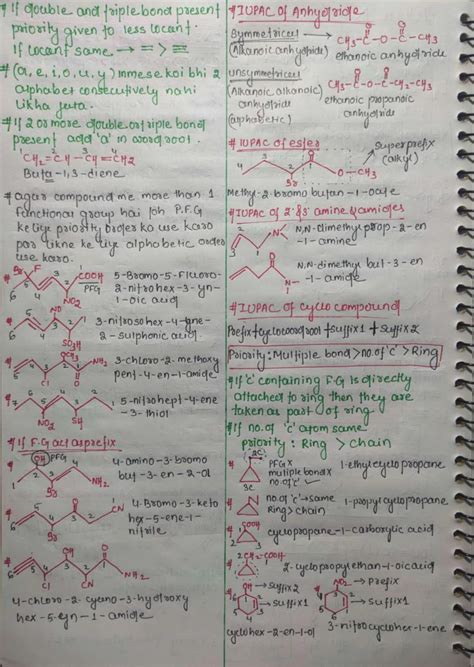 # if double and triple bond present
priority given to less locant.
if locant same → = > ≡
# (a, e, i, o, u, y) inmese koi bhi 2
alphabet consecutively nahi
likha jata.
# if 2 or more double or triple bond
present add 'a' in word root.
1 2 3 4
CH2=CH-CH=CH2
Buta-1,3-diene.
# agar compound me more than 1
functional group hai toh P.F.G
ke liye priority order ko use karo
par likne ke liye alphabetic order
use karo.
Br F COOH
PFG
NO2
5-Bromo-5-Fluoro-
2-nitrohex-3-yn-
1-oic acid
NO
SO3H
3-nitrosohex-4-ene-
2-sulphonic acid.
OCH3
NH2
Cl
3-chloro-2-methoxy
pent-4-en-1-amide
NO2 SH
5-nitrohept-4-ene
-3-thiol
# if F.G act as prefix
OH PFG
NH2
Br
4-amino-3-bromo
but-3-en-2-ol
Br
CN
4-Bromo-3-keto
hex-5-ene-1-
nitrile
OH
NH2
Cl CN
4-chloro-2-cyano-3-hydroxy
hex-5-yn-1-amide
# IUPAC of Anhydride
Symmetrical
(Alkanoic anhydride)
CH3-C-O-C-CH3
O O
ethanoic anhydride
Unsymmetrical
(Alkanoic alkanoic)
anhydride
(alphabetic)
CH3-C-O-C-CH2-CH3
ethanoic propanoic
anhydride
# IUPAC of ester
superprefix
(alkyl)
O
O-CH3
Br
Methyl-2-bromo butan-1-oate
# IUPAC of 2° & 3° amine & amides
N
N,N-dimethyl prop-2-en
-1-amine
O
N
N,N-dimethyl but-3-en
-1-amide
# IUPAC of cyclo compound
Prefix+cyclo word root+suffix1+suffix2
Priority: Multiple bond > no. of 'c' > Ring
# if 'c' containing F.G is directly
attached to ring then they are
taken as part of ring.
# if no. of 'c' atom same
priority: Ring > chain
2C
3C
PFG ×
multiple bond ×
no. of 'c' ✓
1-ethyl cyclopropane
no. of 'c' → same
Ring > chain
1-propyl cyclopropane
COOH
cyclopropane-1-carboxylic acid
CH2-COOH
2-cyclopropylethan-1-oic acid
OH → suffix 2
→ suffix 1
cyclohex-2-en-1-ol
NO2 → Prefix
→ suffix 1
3-nitrocyclohex-1-ene